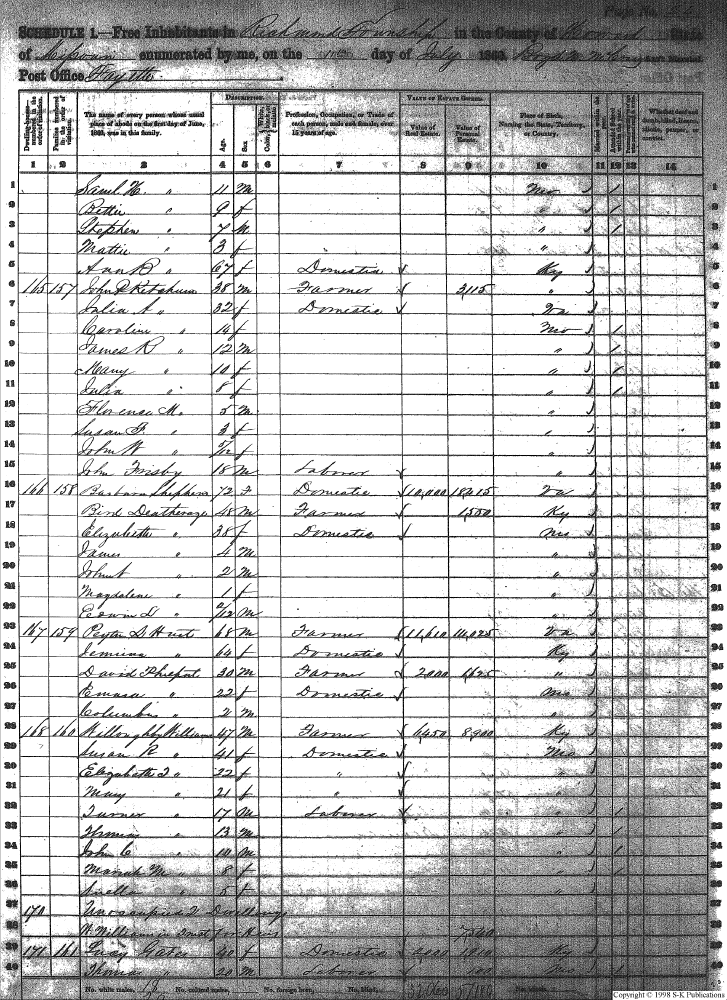 Page No.
SCHEDULE 1.—Free Inhabitants in Richmond Township in the County of Howard State
of Missouri enumerated by me, on the 10th day of July 1860. Boyd M. Ass't Marshal
Post Office Fayette
DESCRIPTION. VALUE OF ESTATE OWNED.
Dwelling-houses—numbered in the order of visitation. Families numbered in the order of visitation. The name of every person whose usual place of abode on the first day of June, 1860, was in this family. Age. Sex. Color, Profession, Occupation, or Trade of each person, male and female, over 15 years of age. Value of Real Estate. Value of Personal Estate. Place of Birth, Naming the State, Territory, or Country. Married within the Attended School within the year.
1 2 3 4 5 6 7 8 9 10 11 12 13 14
1 Saml H. " 11 M Mo / 1
2 Bettie " 9 f " / 1
3 Stephen " 7 M " / 1
4 Mattie " 3 f " /
5 Ann B " 67 f Domestic Ky /
6 165 157 John P Ketchum 38 M Farmer 3115 " /
7 Julia A " 32 f Domestic Va /
8 Caroline " 14 f Mo / 1
9 James R " 12 M " / 1
10 Mary " 10 f " / 1
11 Julia " 8 f " / 1
12 Florence M. " 5 M " /
13 Susan F " 3 f " /
14 John W " /12 f " /
15 John Frisby 18 M Laborer " /
16 166 158 Barbara Shephens 72 F Domestic 10,000 18215 Va /
17 Bird Deatherage 48 M Farmer 1550 Ky /
18 Elizabeth " 38 f Domestic Mo /
19 James " 4 M " /
20 John " 2 M " /
21 Magdalene " 1 f " /
22 Edwin D " /12 M " /
23 167 159 Peyton Hurt 68 M Farmer 11,610 14,025 Va /
24 Jemima " 64 f Domestic Ky /
25 David 30 M Farmer 2000 1625 " /
26 Emma " 22 f Domestic Mo /
27 Columbus " 2 M " /
28 168 160 Willoughby Williams 47 M Farmer 6450 8900 Ky /
29 Susan R " 41 f Domestic Mo /
30 Elizabeth J " 22 f " " /
31 Mary " 21 f " " /
32 Turner " 17 M Laborer " / 1
33 " 13 M " / 1
34 John C " 10 M " / 1
35 Mariah M " 8 f " / 1
36 " 5 f " /
37 170 Unoccupied 2 Dwellings
38 W Williams in Trust for Heirs 7540
39 171 161 Lucy Gates 40 f Domestic 1910 Ky /
40 Thomas " 20 M Laborer 100 Mo / 1
No. white males, No. colored males, No. foreign born, No. blind,
Copyright © 1998 S-K Publications